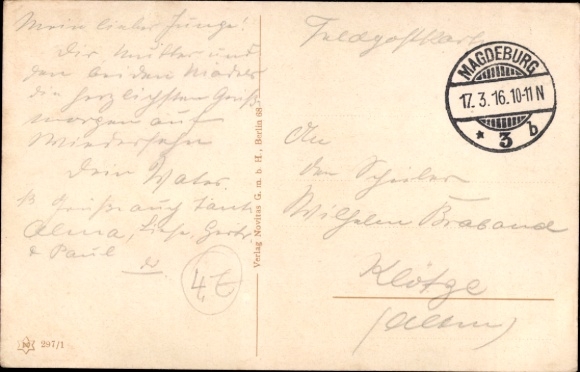 Mein lieber Junge!
Dir Mutter und
den beiden
die herzlichsten Grüße
morgen auf
Wiedersehn
Dein Vater.
Grüße auch Tante
Alma, Liese,
& Paul
4,E
297/1
Verlag Novitas G. m. b. H., Berlin 68
Feldpostkarte
MAGDEBURG
17.3.16.10-11 N
* 3 b
An
den Schüler
Wilhelm Braband
Klötze
(Altm)